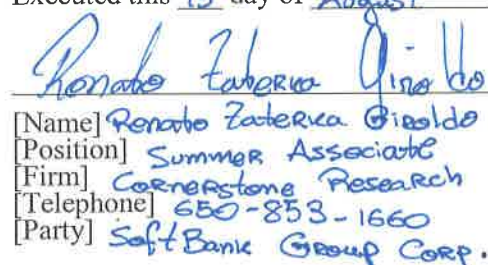 Executed this 15 day of August
Renato Zaterka Giroldo
[Name] Renato Zaterka Giroldo
[Position] Summer Associate
[Firm] Cornerstone Research
[Telephone] 650-853-1660
[Party] SoftBank Group Corp.